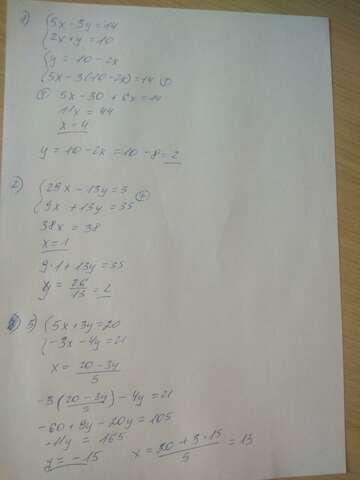 1) {5x - 3y = 14
{2x + y = 10
{y = 10 - 2x
{5x - 3(10 - 2x) = 14 (*)
(*) 5x - 30 + 6x = 14
11x = 44
x = 4
y = 10 - 2x = 10 - 8 = 2
2) {29x - 13y = 3
{9x + 13y = 35 (+)
38x = 38
x = 1
9·1 + 13y = 35
y = 26/13 = 2
3) {5x + 3y = 20
{-3x - 4y = 21
x = (20 - 3y)/5
-3((20 - 3y)/5) - 4y = 21
-60 + 9y - 20y = 105
-11y = 165
y = -15 x = (20 + 3·15)/5 = 13